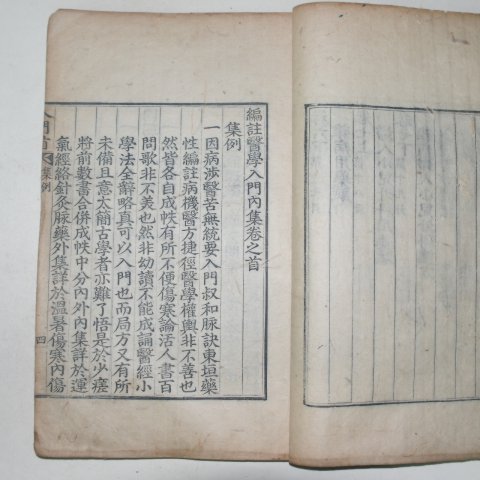 編註醫學入門內集卷之首
集例
一因病涉醫苦無統要入門叔和脉訣東垣藥
性編註病機醫方捷徑醫學權輿非不善也
然皆各自成帙有所不便傷寒論活人書百
問歌非不美也然非幼讀不能成誦醫經小
學法全辭略真可以入門也而局方又有所
未備且意太簡古學者亦難了悟是於少瘥
將前數書合併成帙中分內外內集詳於運
氣經絡針灸脉藥外集詳於溫暑傷寒內傷
入門首 集例 四